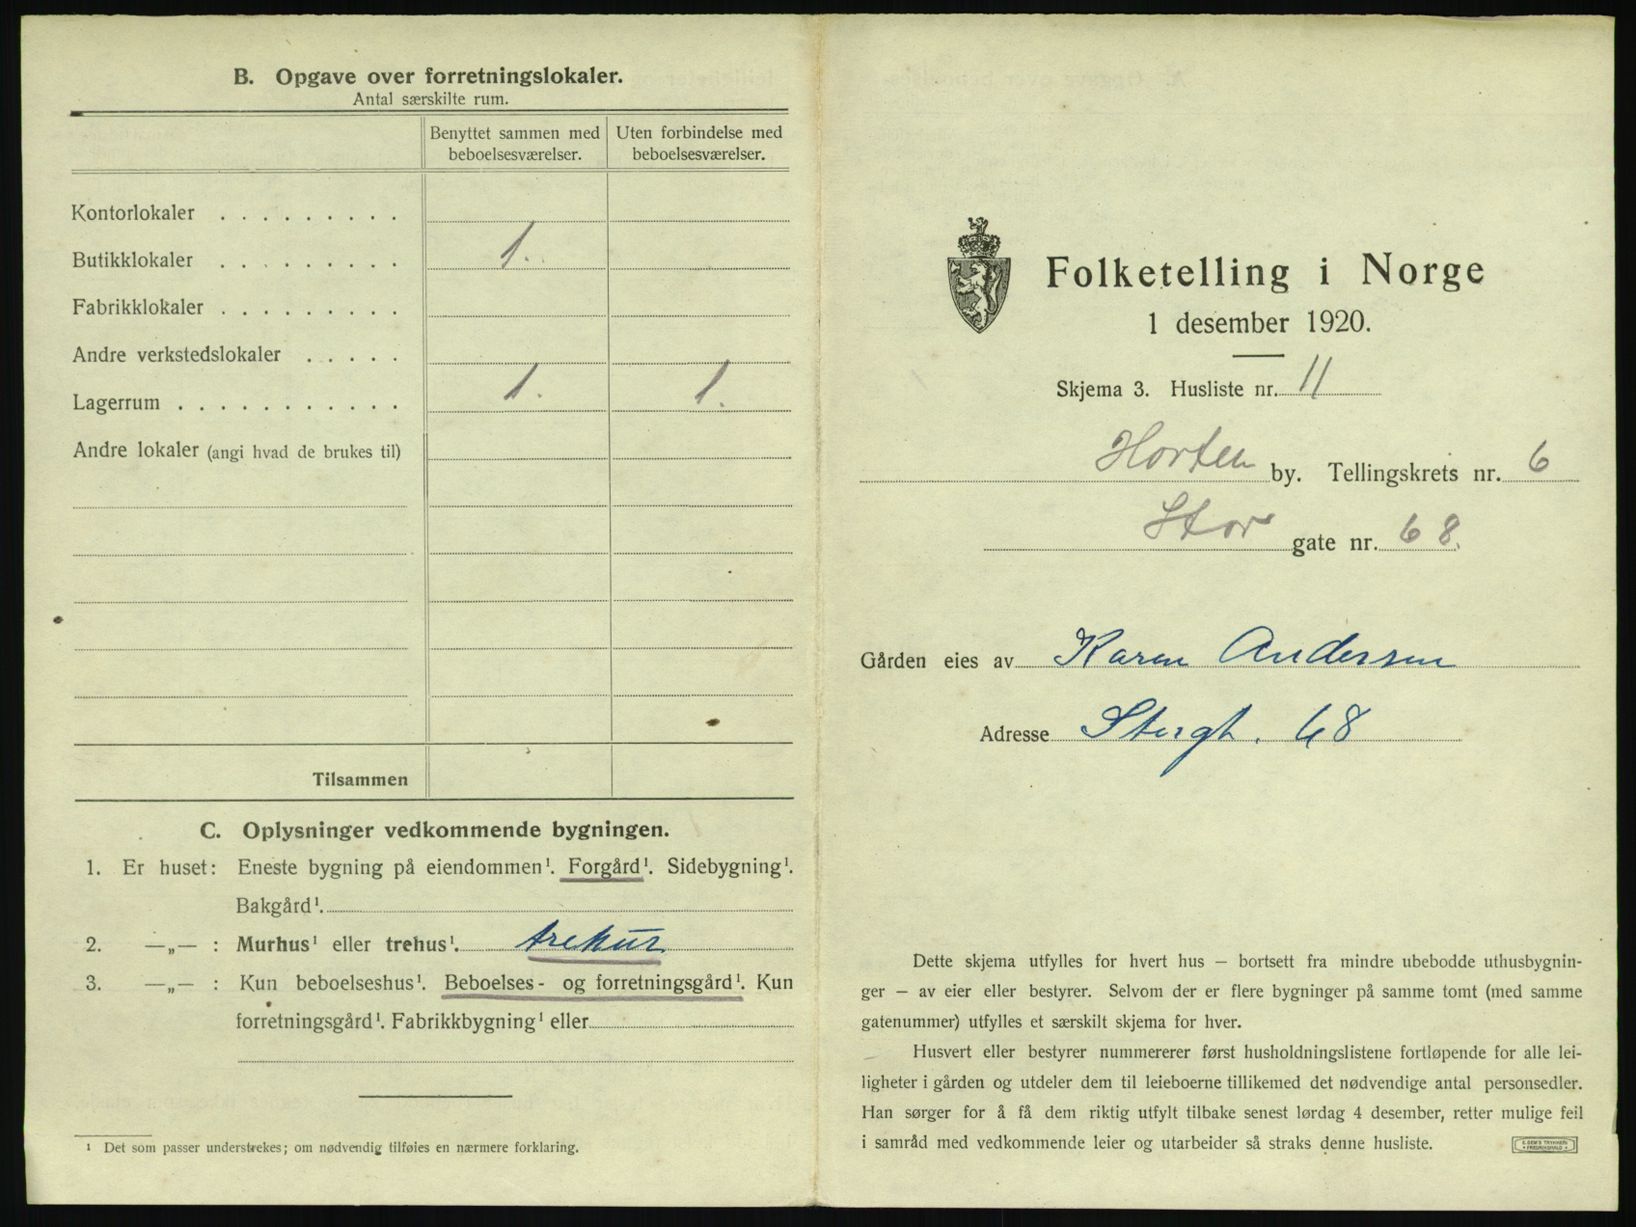 B. Opgave over forretningslokaler.
Antal særskilte rum.
Benyttet sammen med beboelsesværelser.
Uten forbindelse med beboelsesværelser.
Kontorlokaler . . . . . . . . .
Butikklokaler . . . . . . . . . 1.
Fabrikklokaler . . . . . . . . .
Andre verkstedslokaler . . . . .
Lagerrum . . . . . . . . . . . 1. 1.
Andre lokaler (angi hvad de brukes til)
Tilsammen
C. Oplysninger vedkommende bygningen.
1. Er huset: Eneste bygning på eiendommen¹. Forgård¹. Sidebygning¹.
Bakgård¹.
2. —„— : Murhus¹ eller trehus¹. trehus
3. —„— : Kun beboelseshus¹. Beboelses- og forretningsgård¹. Kun
forretningsgård¹. Fabrikkbygning¹ eller
¹ Det som passer understrekes; om nødvendig tilføies en nærmere forklaring.
Folketelling i Norge
1 desember 1920.
Skjema 3. Husliste nr. 11
Horten by. Tellingskrets nr. 6
Stor gate nr. 68.
Gården eies av Karen Andersen
Adresse Storgt. 68
Dette skjema utfylles for hvert hus — bortsett fra mindre ubebodde uthusbygnin-
ger — av eier eller bestyrer. Selvom der er flere bygninger på samme tomt (med samme
gatenummer) utfylles et særskilt skjema for hver.
Husvert eller bestyrer nummererer først husholdningslistene fortløpende for alle lei-
ligheter i gården og utdeler dem til leieboerne tillikemed det nødvendige antal personsedler.
Han sørger for å få dem riktig utfylt tilbake senest lørdag 4 desember, retter mulige feil
i samråd med vedkommende leier og utarbeider så straks denne husliste.